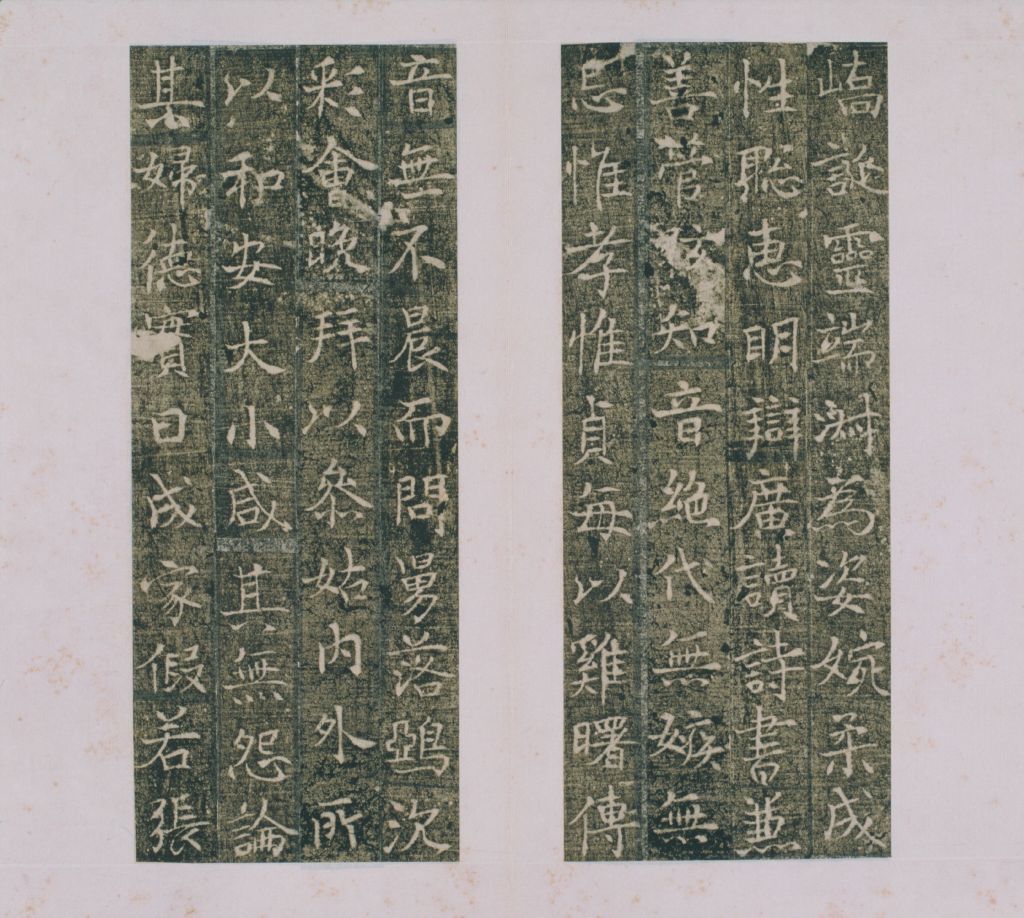 嶠誕靈端淑為姿婉柔成
性聡惠明辯廣讀詩書兼
善管知音絶代無嫉無
忌惟孝惟貞每以雞曙傳
音無不晨而問舅落鵶次
彩會晚拜以叅姑内外所
以和安大小咸其無怨論
其婦德實曰成家假若張